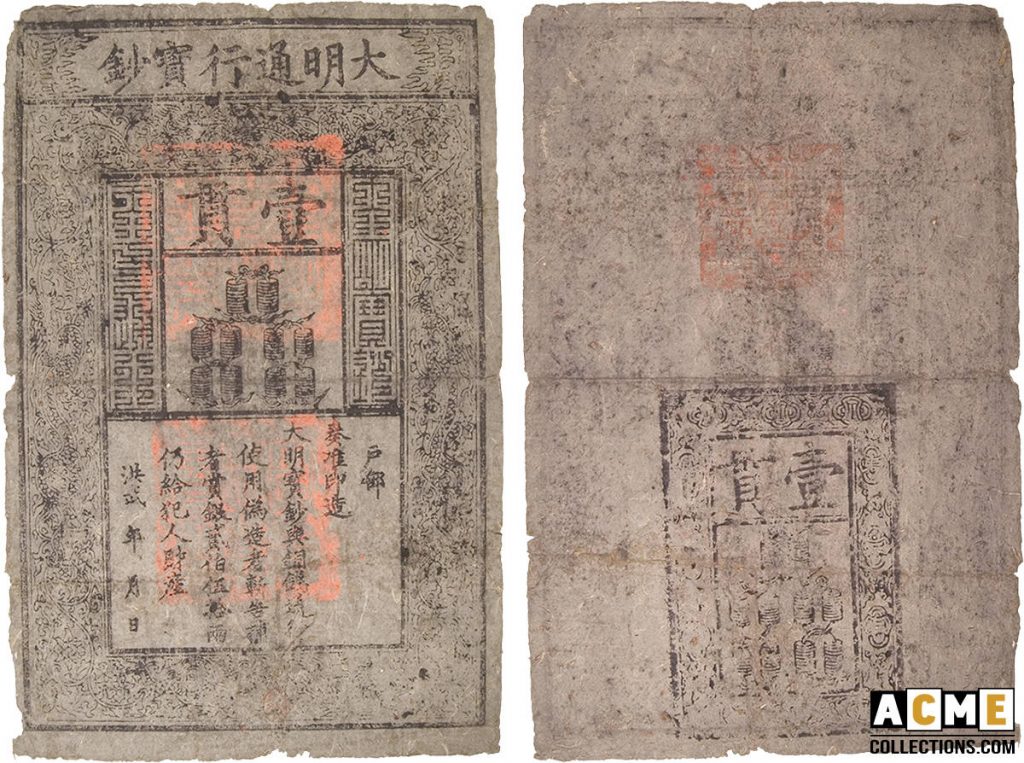 大明通行寶鈔
壹貫
大明寶鈔
天下通行
戶部
奏准印造
大明寶鈔與銅錢通行
使用偽造者斬告捕
者賞銀貳佰伍拾兩
仍給犯人財產
洪武 年 月 日
壹貫
ACME
COLLECTIONS.COM